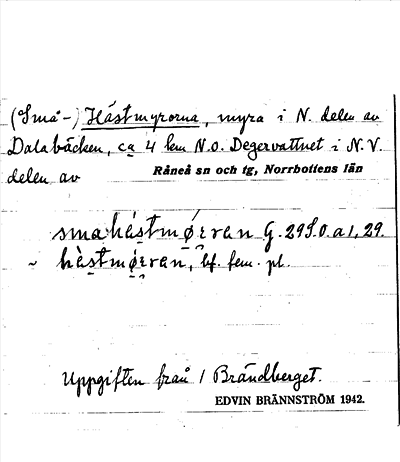 (Små-) Hästmyrorna, myra i N. delen av
Dalabäcken, ca 4 km N.O. Degervattnet i N.V.
delen av Råneå sn och tg, Norrbottens län
smahást mǿran G. 29S.O.a1, 29.
~ hàstmǿran, bf. fem. pl.
Uppgiften från 1 Brändberget.
EDVIN BRÄNNSTRÖM 1942.